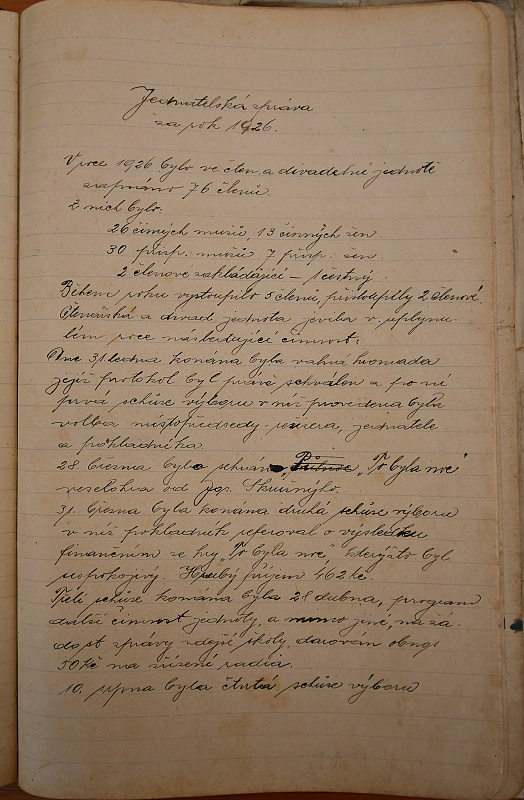 Jednatelská zpráva
za rok 1926.
V roce 1926 bylo ve čten. a divadelné jednotě
zapsáno 76 členů.
Z nich bylo:
26 činných mužů 13 činných žen
30 přisp. mužů 7 přisp. žen.
2 členové zakládající – 1 čestný.
Během roku vystoupilo 5 členů, přistoupily 2 členové.
Čtenářská a divad. jednota jevila v uplynu-
lém roce následující činnost.
Dne 31. ledna konána byla valná hromada
jejíž protokol byl právě schválen a po ní
prvá schůze výboru v níž provedena byla
volba místopředsedy, režisera, jednatele
a pokladníka.
28. března byla sehrána „To byla noc"
veselohra od Jgn.
31. března byla konána druhá schůze výboru
v níž pokladník referoval o výsledku
finančním ze hry „To byla noc" kterýžto byl
uspokojivý. Hrubý příjem 462 Kč.
Třetí schůze konána byla 28 dubna, program
další činnost jednoty, a mimo jiné, na žá-
dost správy zdejší školy, darován obnos
50 Kč na zřízení radia.
10. srpna byla čtvrtá schůze výboru